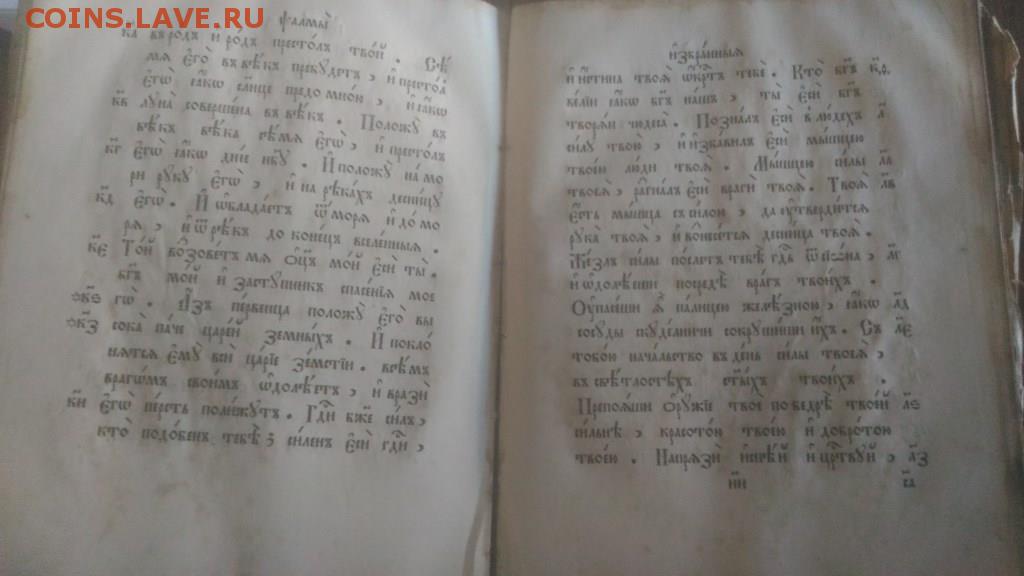 COINS.LAVE.RU
ѱалмы̀
ка въ ро́дъ и҆ ро́дъ престо́лъ тво́й . Сѣ́
мѧ є҆гѡ̀ въ вѣ́къ пребꙋ́детъ , и҆ престо́л
є҆гѡ̀ ꙗ҆́кѡ со́лнце предо мно́ю , и҆ ꙗ҆́кѡ
кв҃ лꙋна̀ соверше́на въ вѣ́къ . Положꙋ̀ въ
вѣ́къ вѣ́ка сѣ́мѧ є҆гѡ̀ , и҆ престо́лъ
кг҃ є҆гѡ̀ ꙗ҆́кѡ дні́е нб҃ꙋ . И҆ положꙋ̀ на мо
ри рꙋ́кꙋ є҆гѡ̀ , и҆ на рѣка́хъ десни́цꙋ
кд҃ є҆гѡ̀ . И҆ ѡ҆блада́етъ ѿ мо́рѧ и҆ до мо
рѧ , и҆ ѿ рѣ́къ до коне́цъ вселе́нныѧ .
ке҃ То́й возове́тъ мѧ ѻ҆ц҃ъ мо́й є҆сѝ ты̀ .
бг҃ъ мо́й и҆ застꙋ́пникъ спасе́нїѧ мое
кѕ҃ гѡ̀ . А҆́зъ пе́рвенца положꙋ̀ є҆гѡ̀ вы
кз҃ сока̀ па́че царе́й земны́хъ . И҆ покло́
нѧтсѧ є҆мꙋ̀ всѝ ца́рїе зе́мстїи . всѣ́мъ
врагѡ́мъ свои́мъ ѡ҆долѣ́етъ , и҆ вразѝ
ки҃ є҆гѡ̀ пе́рсть поли́жꙋтъ . Гдⷭ҇и бж҃е си́лъ ,
кто̀ подо́бенъ тебѣ̀ ; си́ленъ є҆сѝ гдⷭ҇и ,
и҆збра́нныѧ
и҆ и҆́стина твоѧ̀ ѡ҆́крⷭ҇тъ тебє̀ . Кто̀ бг҃ъ к҃ѳ
ве́лїи ꙗ҆́кѡ бг҃ъ на́шъ , ты̀ є҆сѝ бг҃ъ
творѧ́и чюдеса̀ . Позна́лъ є҆сѝ в лю́дехъ л҃
си́лꙋ твою̀ , и҆ и҆зба́вилъ є҆сѝ мы́шцею
твое́ю лю́ди твоѧ̀ . Мы́шцею си́лы л҃а
твоеѧ̀ , разгна́лъ є҆сѝ врагѝ твоѧ̀ . Твоѧ̀ л҃в
є҆́сть мы́шца съ си́лою , да ᲂу҆тверди́тсѧ
рꙋка̀ твоѧ̀ , и҆ вознесе́тсѧ десни́ца твоѧ̀ .
Же́злъ си́лы по́слетъ тебѣ̀ гдⷭ҇ь ѿ сїѡ́на , л҃г
и҆ ѡ҆долѣ́еши посредѣ̀ вра́гъ твои́хъ .
Оу҆пасе́ши ѧ҆̀ па́лицею желѣ́зною , ꙗ҆́кѡ л҃д
сосꙋ́ды скꙋде́льничи сокрꙋши́ши и҆́хъ . Съ л҃е
тобо́ю нача́льство въ де́нь си́лы твоеѧ̀ ,
въ свѣ́тлостехъ ст҃ы́хъ твои́хъ .
Препоѧ́ши ѻ҆рꙋ́жїе твоѐ по бедрѣ̀ твое́й л҃ѕ
си́льне , красото́ю твое́ю и҆ добро́тою
твое́ю . Налѧзѝ и҆ спѣ́й и҆ црⷭ҇твꙋй , л҃з
и҆и
г҃а